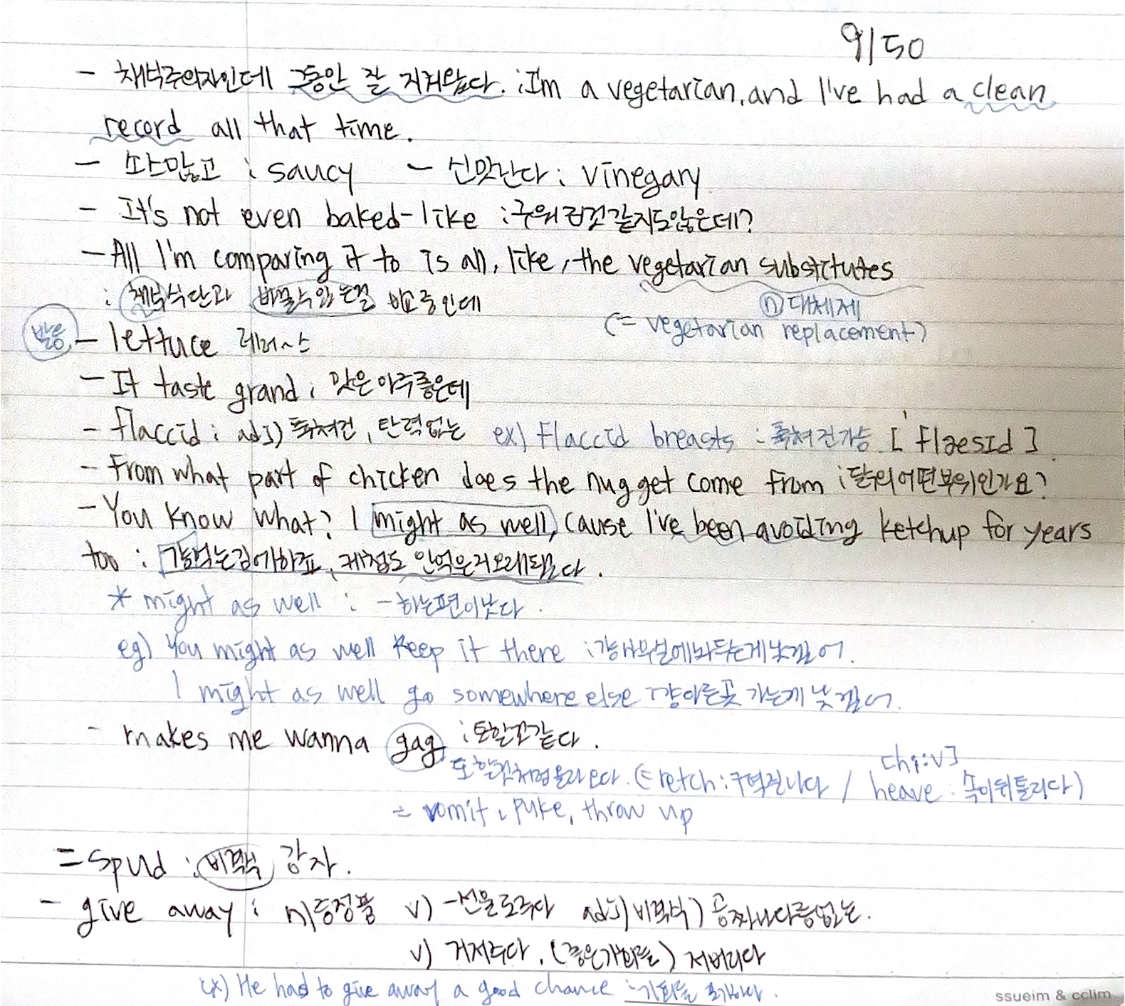 9/50
- 채식주의자인데 그동안 잘 지켜왔다. : I'm a vegetarian, and I've had a clean
record all that time.
- 소스많고 : saucy - 신맛난다 : vinegary
- It's not even baked-like : 구워진것같지도않은데?
- All I'm comparing it to is all, like, the vegetarian substitutes
: 채식식단과 바꿀수있는걸 비교중인데 ⓝ 대체제
(= vegetarian replacement)
발음 - lettuce 레러스
- It taste grand : 맛은아주좋은데
- flaccid : adj) 축쳐진, 탄력없는 ex) Flaccid breasts : 축쳐진가슴 ['flæsid].
- From what part of chicken does the nugget come from : 닭의어떤부위인가요?
- You know what? I might as well, cause I've been avoiding ketchup for years
too : 걍먹는김에하죠, 케첩도 안먹은지오래됐다.
* might as well : -하는편이낫다.
eg) You might as well keep it there : 걍사무실에놔두는게낫겠어.
I might as well go somewhere else : 걍다른곳 가는게 낫겠어.
- makes me wanna gag : 토할꺼같다.
[hi:v]
토할것처럼올라오다. (= retch : 구역질나다 / heave : 속이뒤틀리다)
= vomit, puke, throw up
= spud : 비격식 감자.
- give away : n) 증정품 v) -선물로주다 adj) 비격식) 공짜나다름없는.
v) 거저주다, (좋은기회를) 저버리다
ex) He had to give away a good chance : 기회를
ssueim & cclim